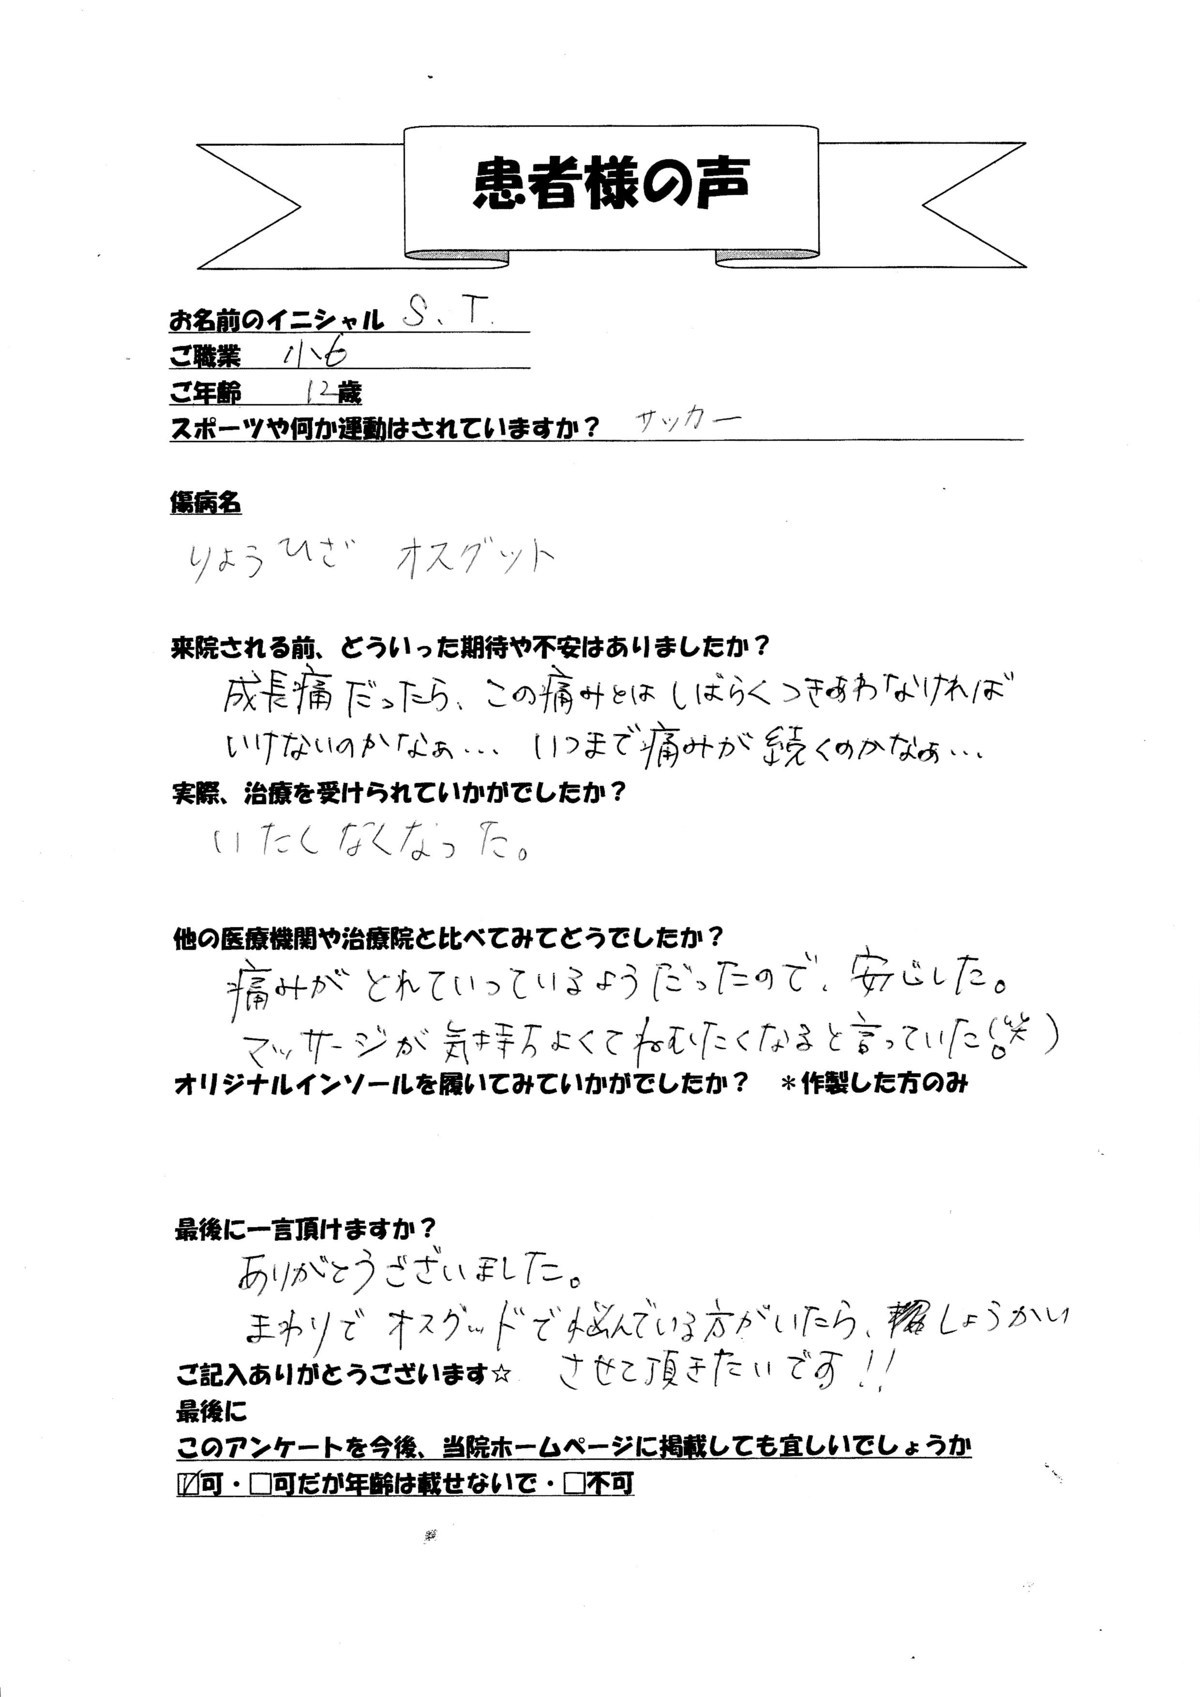 患者様の声
お名前のイニシャル S、T.
ご職業 小6
ご年齢 12歳
スポーツや何か運動はされていますか？ サッカー
傷病名
りょうひざ オスグット
来院される前、どういった期待や不安はありましたか？
成長痛だったら、この痛みとは しばらくつきあわなければ
いけないのかなぁ… いつまで痛みが続くのかなぁ…
実際、治療を受けられていかがでしたか？
いたくなくなった。
他の医療機関や治療院と比べてみてどうでしたか？
痛みがとれていっているようだったので、安心した。
マッサージが気持ちよくてねむたくなると言っていた(笑)
オリジナルインソールを履いてみていかがでしたか？ ＊作製した方のみ
最後に一言頂けますか？
ありがとうございました。
まわりで オスグッドで悩んでいる方がいたら、しょうかい
させて頂きたいです!!
ご記入ありがとうございます☆
最後に
このアンケートを今後、当院ホームページに掲載しても宜しいでしょうか
☑可・□可だが年齢は載せないで・□不可